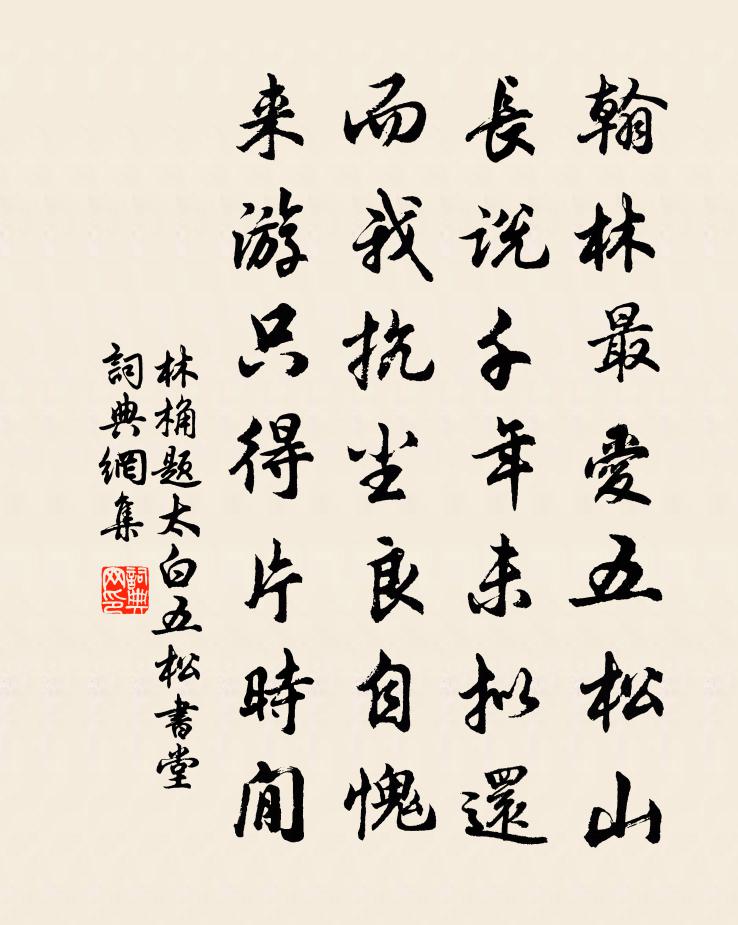 翰林最愛五松山
長説千年未拟還
而我抗尘良自愧
来游只得片時閒
林桷题太白五松書堂
詞典網集
詞典網印